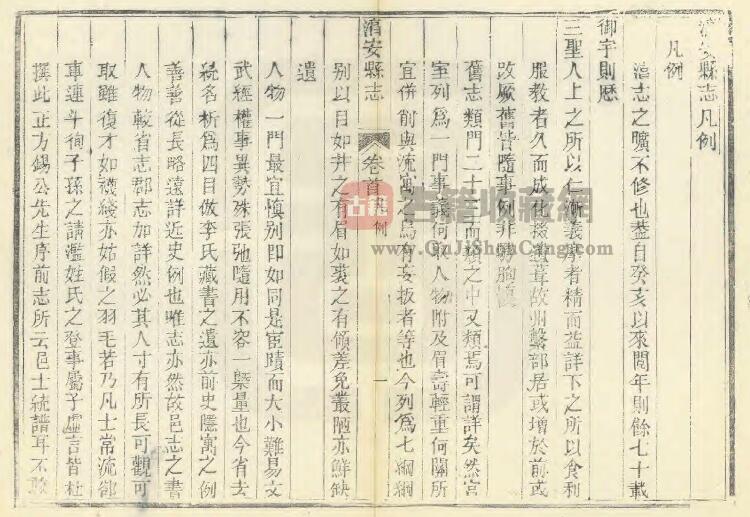 安縣志凡例
凡例
志之曠不修也葢自癸亥以來閱年則餘七十載
御宇則歷
三聖人上之所以仁漸義摩者精而益詳下之所以食利
服教者久而成化掇遺葺故州繫部居或增於前或
改厥舊皆隨事例非
舊志類門二十三而類之中又類焉可謂詳矣然宮
室列爲一門事義何取人物附及眉壽輕重何關所
宜併削與流寓之爲有妄扳者等也今列爲七綱綱
別以目如井之有眉如裘之有領差免叢陋亦鮮缺
遺
安縣志 卷首 凡例 一
人物一門最宜慎別即如同是宦蹟而大小難易文
武經權事異勢殊張弛隨用不容一槩量也今省去
統名析爲四目倣李氏藏書之遺亦前史隱寓之例
善善從長略遠詳近史例也唯志亦然故邑志之書
人物較省志郡志加詳然必其人寸有所長可觀可
取雖復才如襪綫亦姑假之羽毛若乃凡士常流卻
車運斗徇子孫之請濫姓氏之登事屬子虛言皆杜
撰此正方錫公先生序前志所云邑士統譜耳不敢
古籍收藏網
www.GuJiShouCang.com